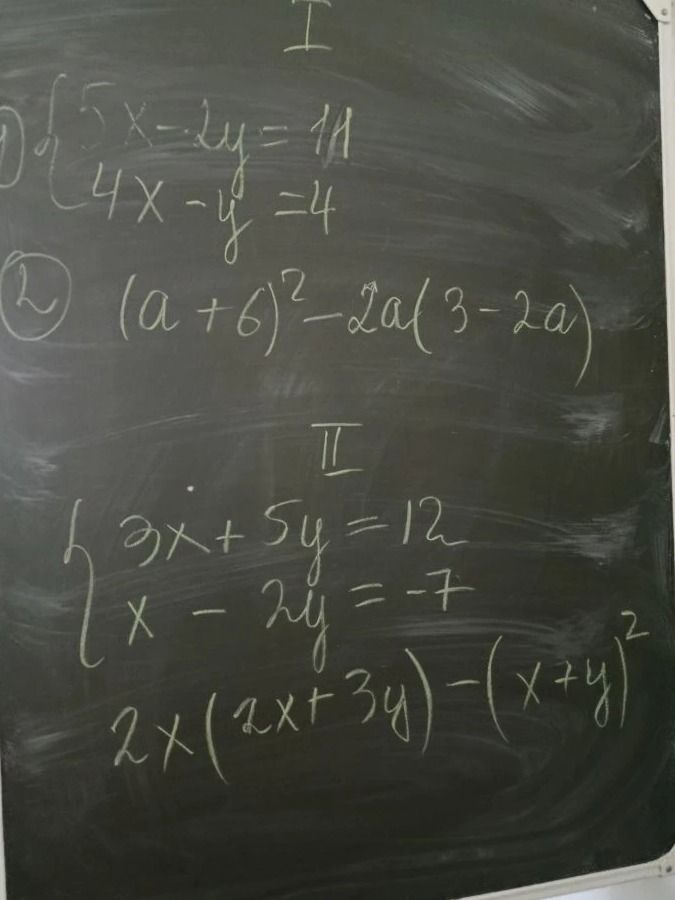 I
1) { 5x - 2y = 11
4x - y = 4
2 (a + 6)² - 2a(3 - 2a)
II
{ 3x + 5y = 12
x - 2y = -7
2x(2x + 3y) - (x + y)²